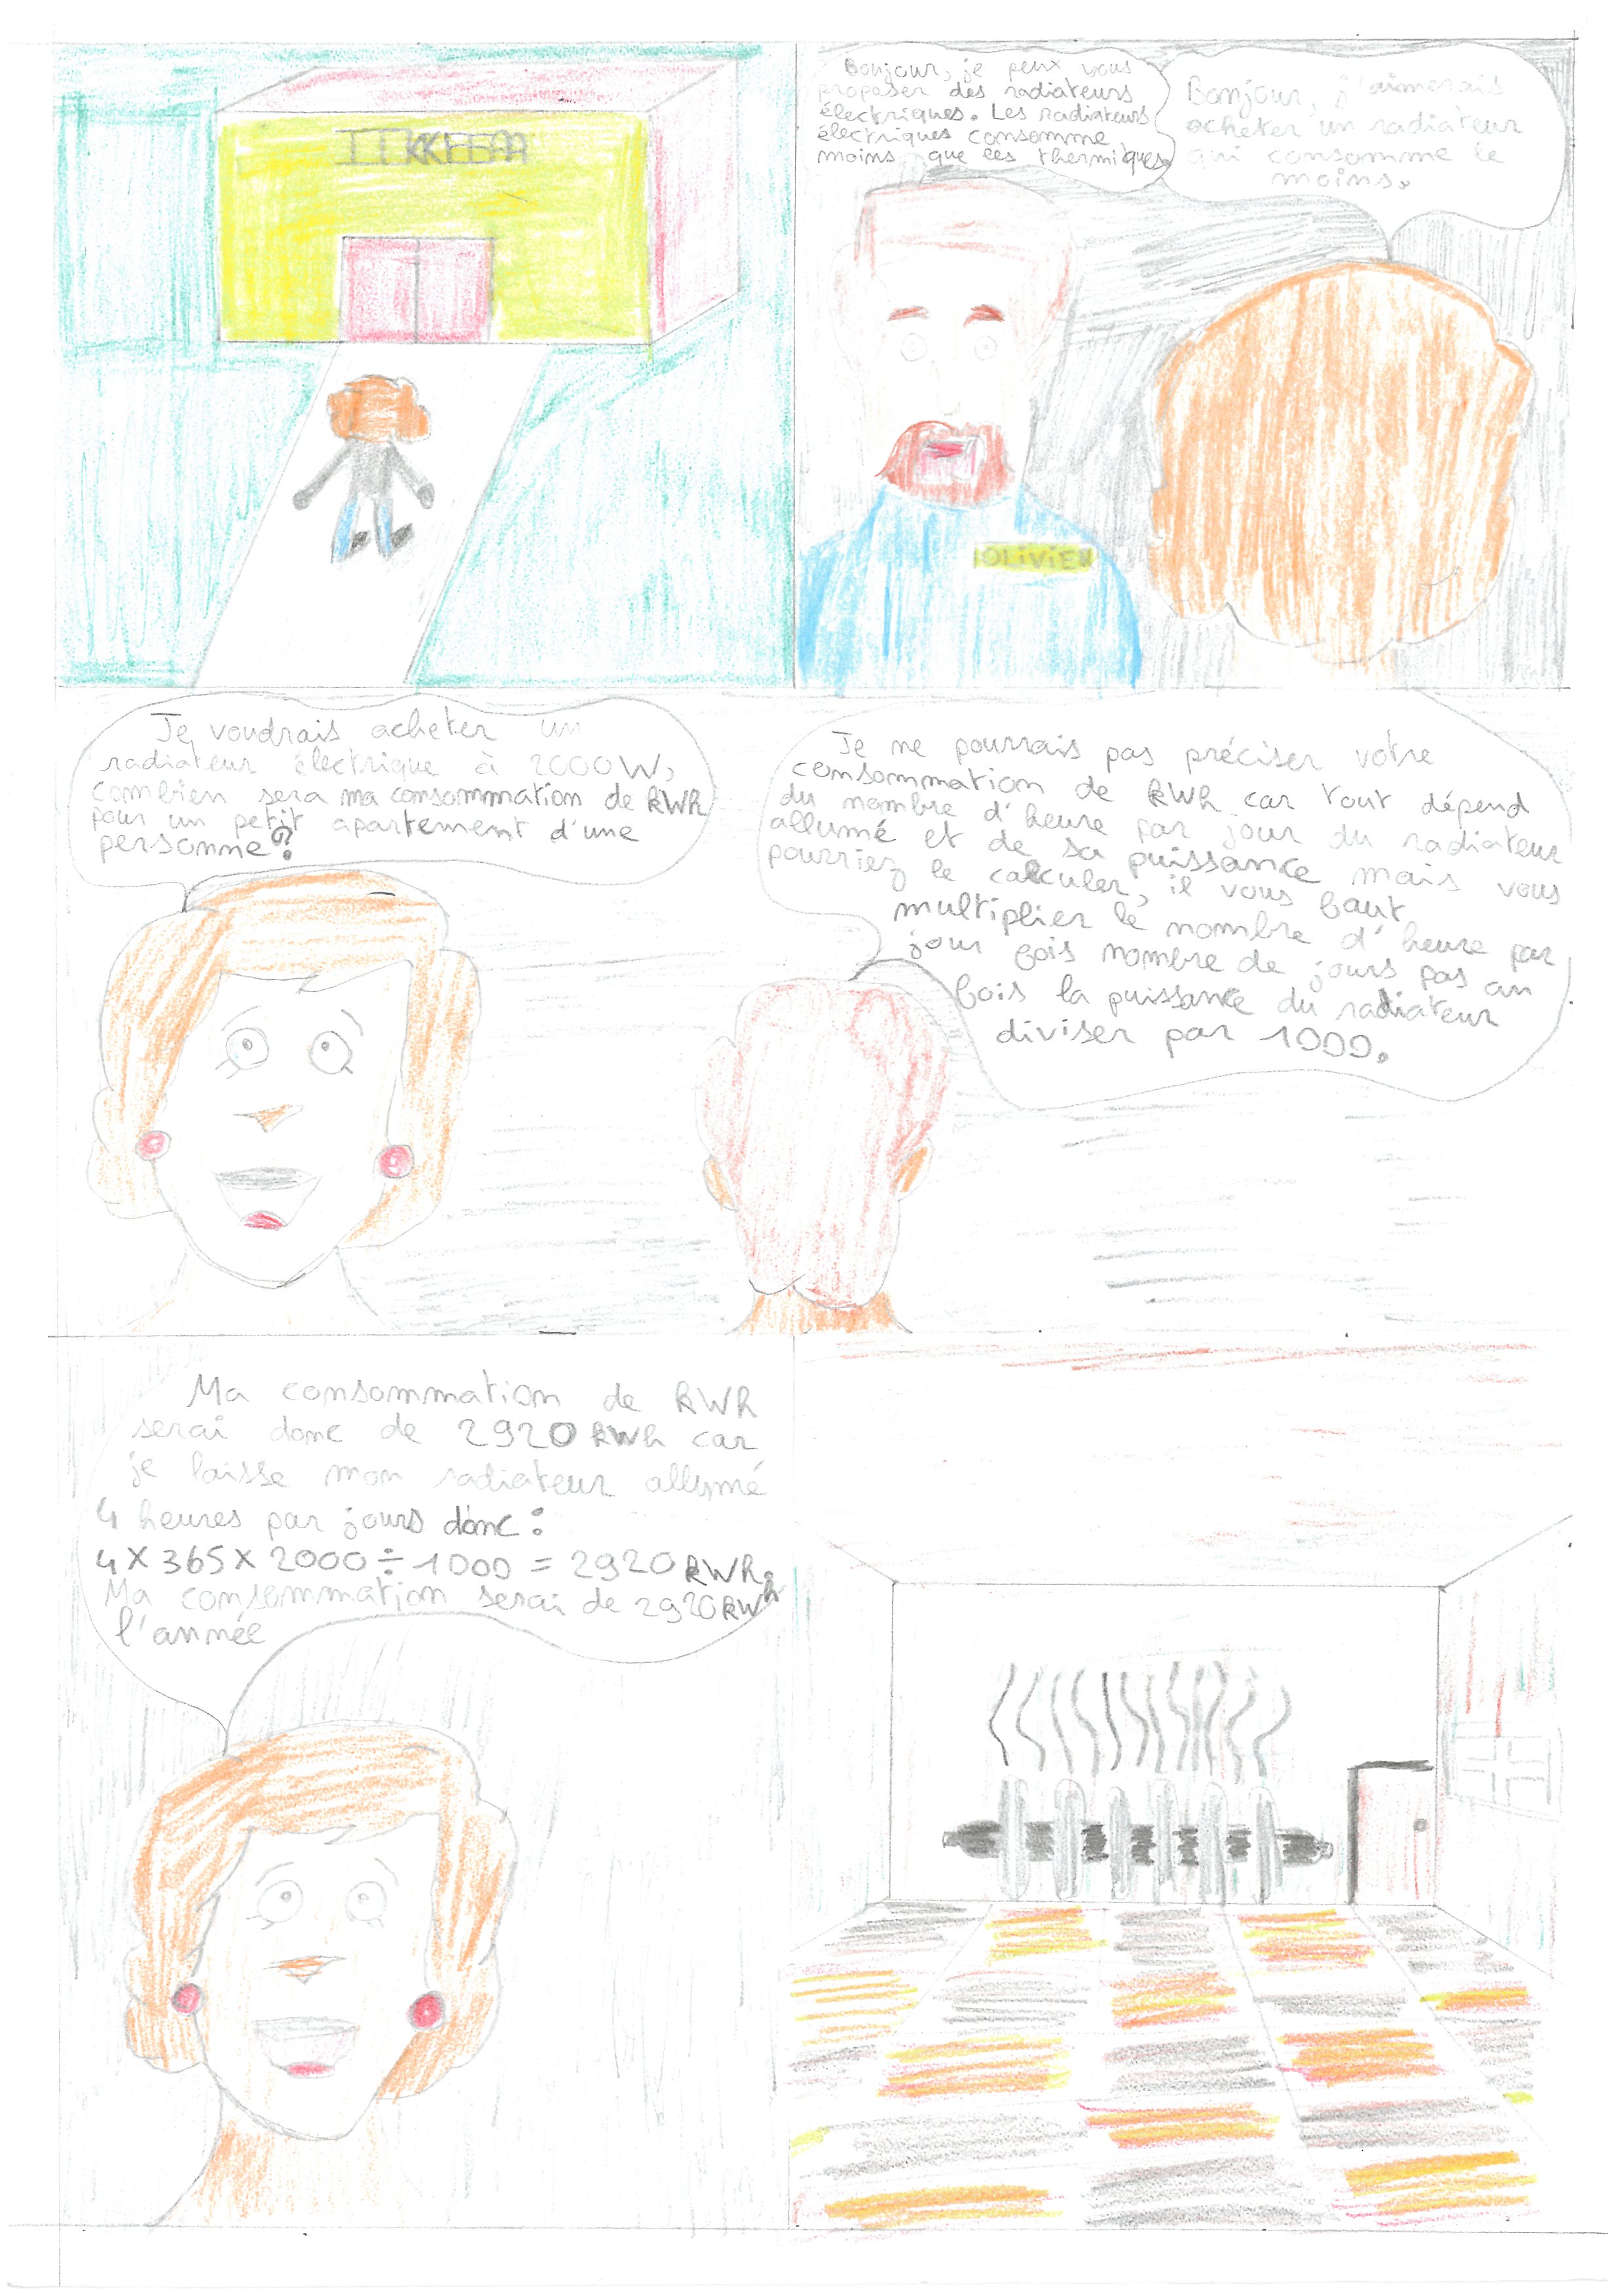 IIKKEEAA
Bonjour, je peux vous
proposer des radiateurs
électriques. Les radiateurs
électriques consomme
moins que les thermiques.
Bonjour, j'aimerais
acheter un radiateur
qui consomme le
moins.
OLiViER
Je voudrais acheter un
radiateur électrique à 2000W,
combien sera ma consommation de kWh
pour un petit apartement d'une
personne?
Je ne pourrais pas préciser votre
consommation de kWh car tout dépend
du nombre d'heure par jour du radiateur
allumé et de sa puissance mais vous
pourriez le calculer, il vous faut
multiplier le nombre d'heure par
jour fois nombre de jours pas an
fois la puissance du radiateur
diviser par 1000.
Ma consommation de kWh
serai donc de 2920 kWh car
je laisse mon radiateur allumé
4 heures par jours donc:
4 X 365 X 2000 ÷ 1000 = 2920 kWh.
Ma consommation serai de 2920 kWh
l'année